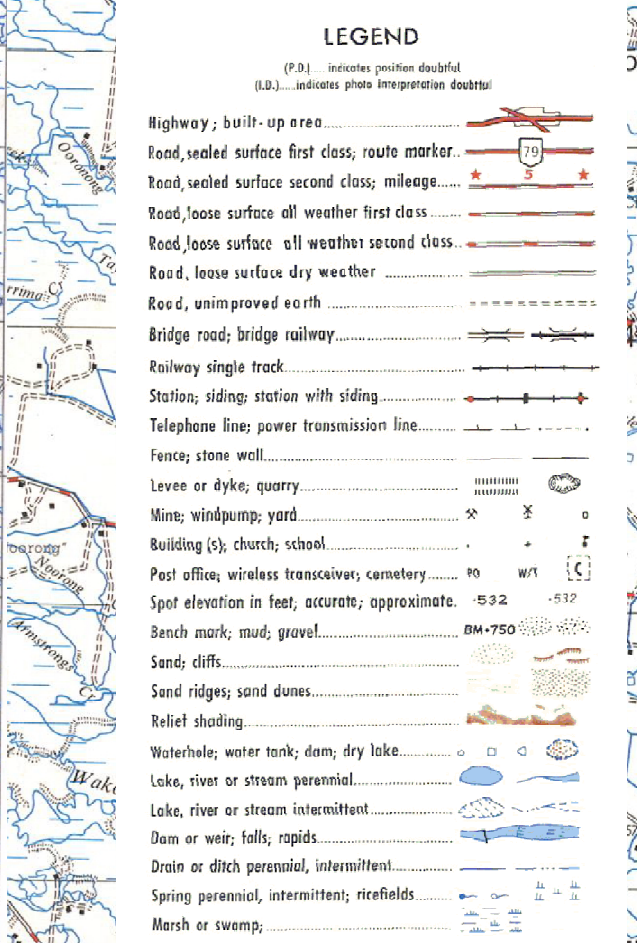 LEGEND
(P.D.)..... indicates position doubtful
(I.D.).....indicates photo interpretation doubtful
Highway; built-up area
Road, sealed surface first class; route marker.. 79
Road, sealed surface second class; mileage..... 5
Road, loose surface all weather first class
Road, loose surface all weather second class..
Road, loose surface dry weather
Road, unimproved earth
Bridge road; bridge railway
Railway single track
Station; siding; station with siding
Telephone line; power transmission line
Fence; stone wall
Levee or dyke; quarry
Mine; windpump; yard
Building (s); church; school
Post office; wireless transceiver; cemetery....... PO W/T C
Spot elevation in feet; accurate; approximate. ·532 ·532
Bench mark; mud; gravel BM•750
Sand; cliffs
Sand ridges; sand dunes
Relief shading
Waterhole; water tank; dam; dry lake
Lake, river or stream perennial
Lake, river or stream intermittent
Dam or weir; falls; rapids
Drain or ditch perennial, intermittent
Spring perennial, intermittent; ricefields
Marsh or swamp;
Ooroong
Ta
rrima Cr
oorong"
Noorong
Armstrongs
Cr
Wak